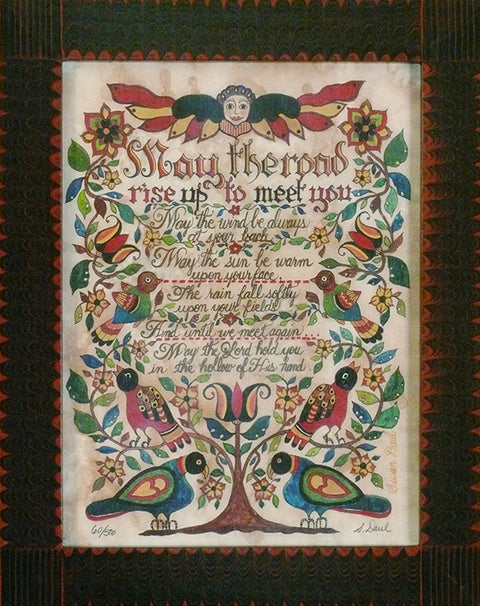 May the road
rise up to meet you
May the wind be always
at your back
May the sun be warm
upon your face,
The rain fall softly
upon your fields
And until we meet again...
May the Lord hold you
in the hollow of His hand
S. Daul